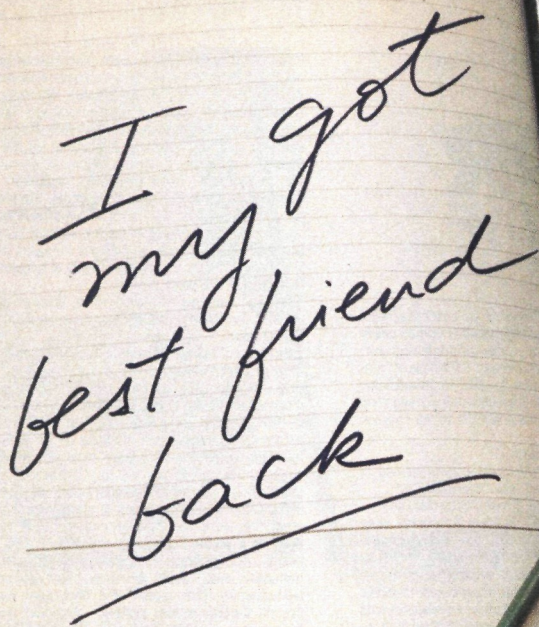 I got
my
best friend
back